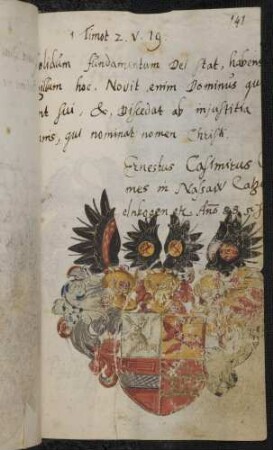 141
1 Timot 2. v. 19
solidum fundamentum Dei stat, habens
hoc. Novit enim Dominus qui
sui, &, Discedat ab injustitia
qui nominat nomen Christi.
Ernestus Casimirus
mes in Nassaw Catz
elnbogen etc Año